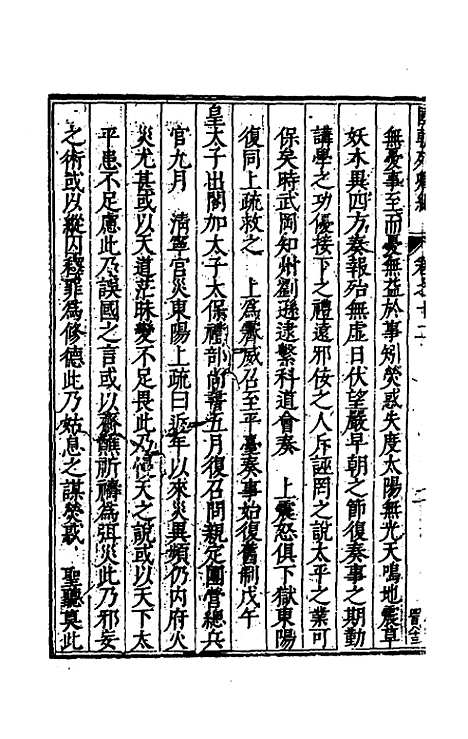 國朝列卿紀 卷之十二
無憂事至而憂無益於事矧熒惑失度太陽無光天鳴地震草
妖木異四方奏報殆無虛日伏望嚴早朝之節復奏事之期動
講學之功優接下之禮遠邪佞之人斥誣罔之說太平之業可
保矣時武岡知州劉遜逮繫科道會奏 上震怒俱下獄東陽
復同上疏救之 上為霽威召至平臺奏事始復舊制戊午
皇太子出閣加太子太保禮部尚書五月復召問親定團營總兵
官九月 清寧宮災東陽上疏曰近年以來災異頻仍內府火
災尤甚或以天道茫昧變不足畏此乃慢天之說或以天下太
平患不足慮此乃誤國之言或以齋醮祈禱為弭災此乃邪妄
之術或以縱囚釋罪為修德此乃姑息之謀熒惑 聖聽莫此